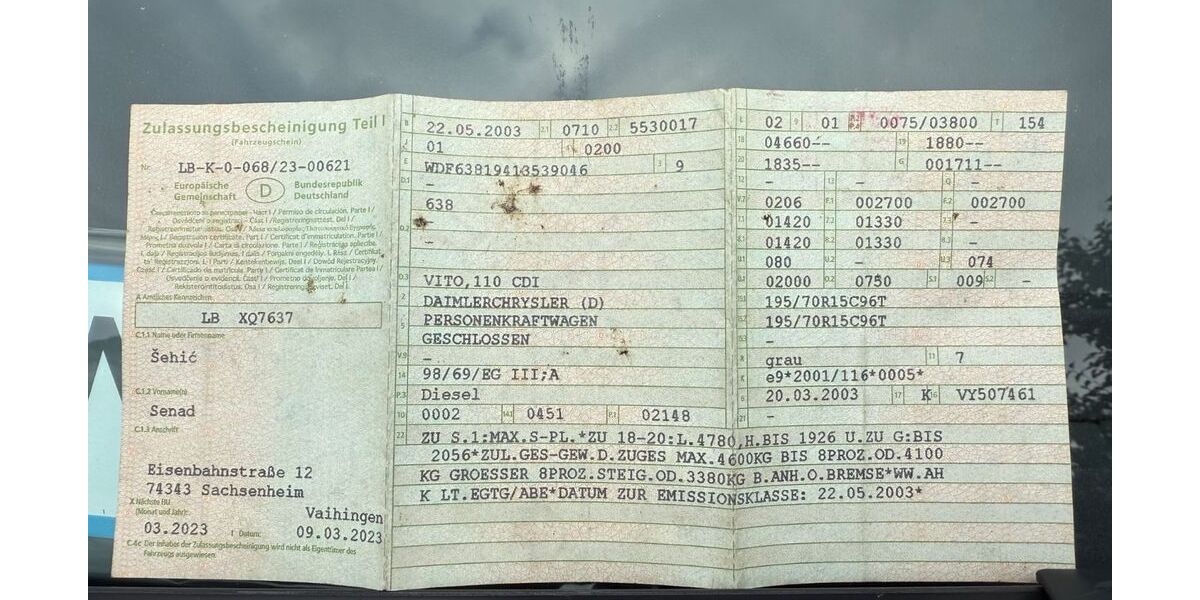 Zulassungsbescheinigung Teil I
(Fahrzeugschein)
Nr. LB-K-0-068/23-00621
Europäische Gemeinschaft D Bundesrepublik Deutschland
A Amtliches Kennzeichen
LB XQ7637
C.1.1 Name oder Firmenname
Šehić
C.1.2 Vorname(n)
Senad
C.1.3 Anschrift
Eisenbahnstraße 12
74343 Sachsenheim
X Nächste HU
(Monat und Jahr):
03.2023
Vaihingen
I Datum: 09.03.2023
C.4c Der Inhaber der Zulassungsbescheinigung wird nicht als Eigentümer des
Fahrzeugs ausgewiesen.
B 22.05.2003 2.1 0710 2.2 5530017
J 01 4 0200
E WDF63819413539046 3 9
D.1 -
638
D.2
-
D.3 VITO,110 CDI
2 DAIMLERCHRYSLER (D)
5 PERSONENKRAFTWAGEN
GESCHLOSSEN
V.9 -
14 98/69/EG III;A
P.3 Diesel
10 0002 14.1 0451 P.1 02148
22 ZU S.1:MAX.S-PL.*ZU 18-20:L.4780,H.BIS 1926 U.ZU G:BIS
2056*ZUL.GES-GEW.D.ZUGES MAX.4600KG BIS 8PROZ.OD.4100
KG GROESSER 8PROZ.STEIG.OD.3380KG B.ANH.O.BREMSE*WW.AH
K LT.EGTG/ABE*DATUM ZUR EMISSIONSKLASSE: 22.05.2003*
L 02 9 01 0075/03800 T 154
18 04660-- 19 1880--
20 1835-- G 001711--
12 - 13 - Q -
V.7 0206 F.1 002700 F.2 002700
7.1 01420 7.2 01330 7.3 -
8.1 01420 8.2 01330 8.3
U.1 080 U.2 - U.3 074
O.1 02000 O.2 0750 S.1 009 S.2 -
15.1 195/70R15C96T
15.2 195/70R15C96T
15.3 -
R grau 11 7
K e9*2001/116*0005*
6 20.03.2003 17 K 16 VY507461
21 -